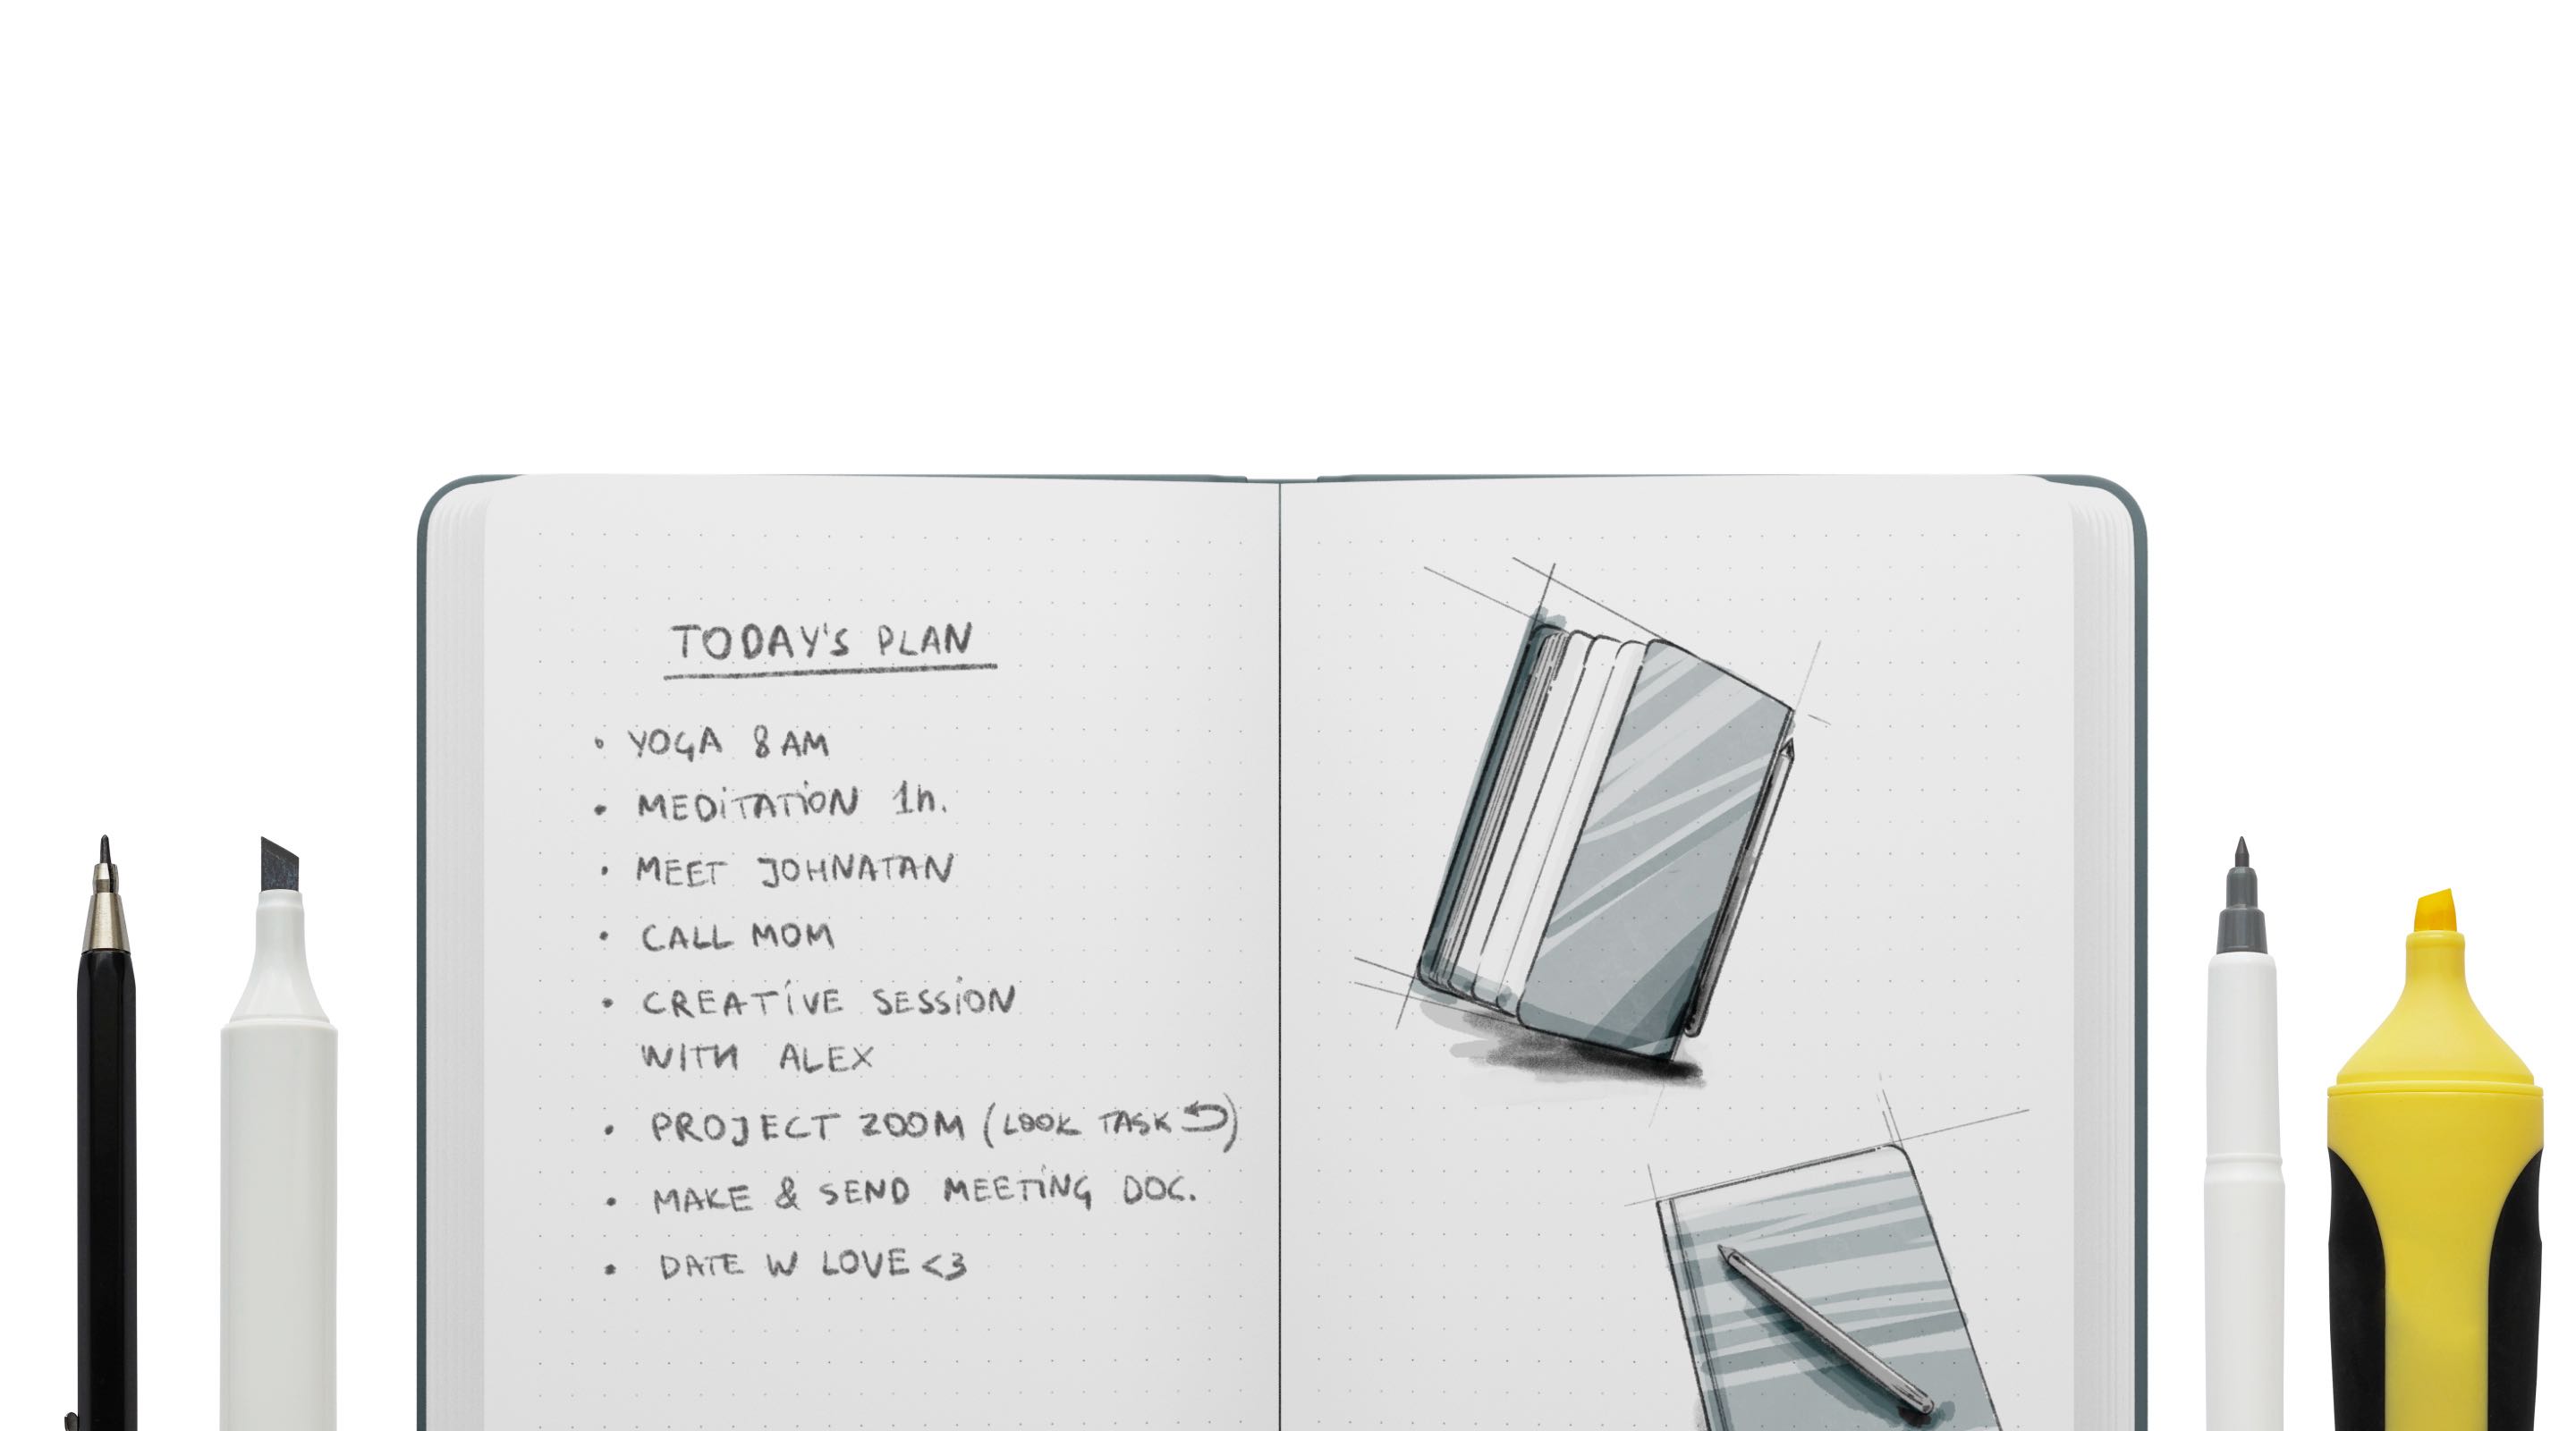 TODAY'S PLAN
• YOGA 8 AM
• MEDiTATiON 1h.
• MEET JOHNATAN
• CALL MOM
• CREATiVE SESSiON
WITH ALEX
• PROJECT ZOOM (LOOK TASK ⮌)
• MAKE & SEND MEETiNG DOC.
• DATE W LOVE <3